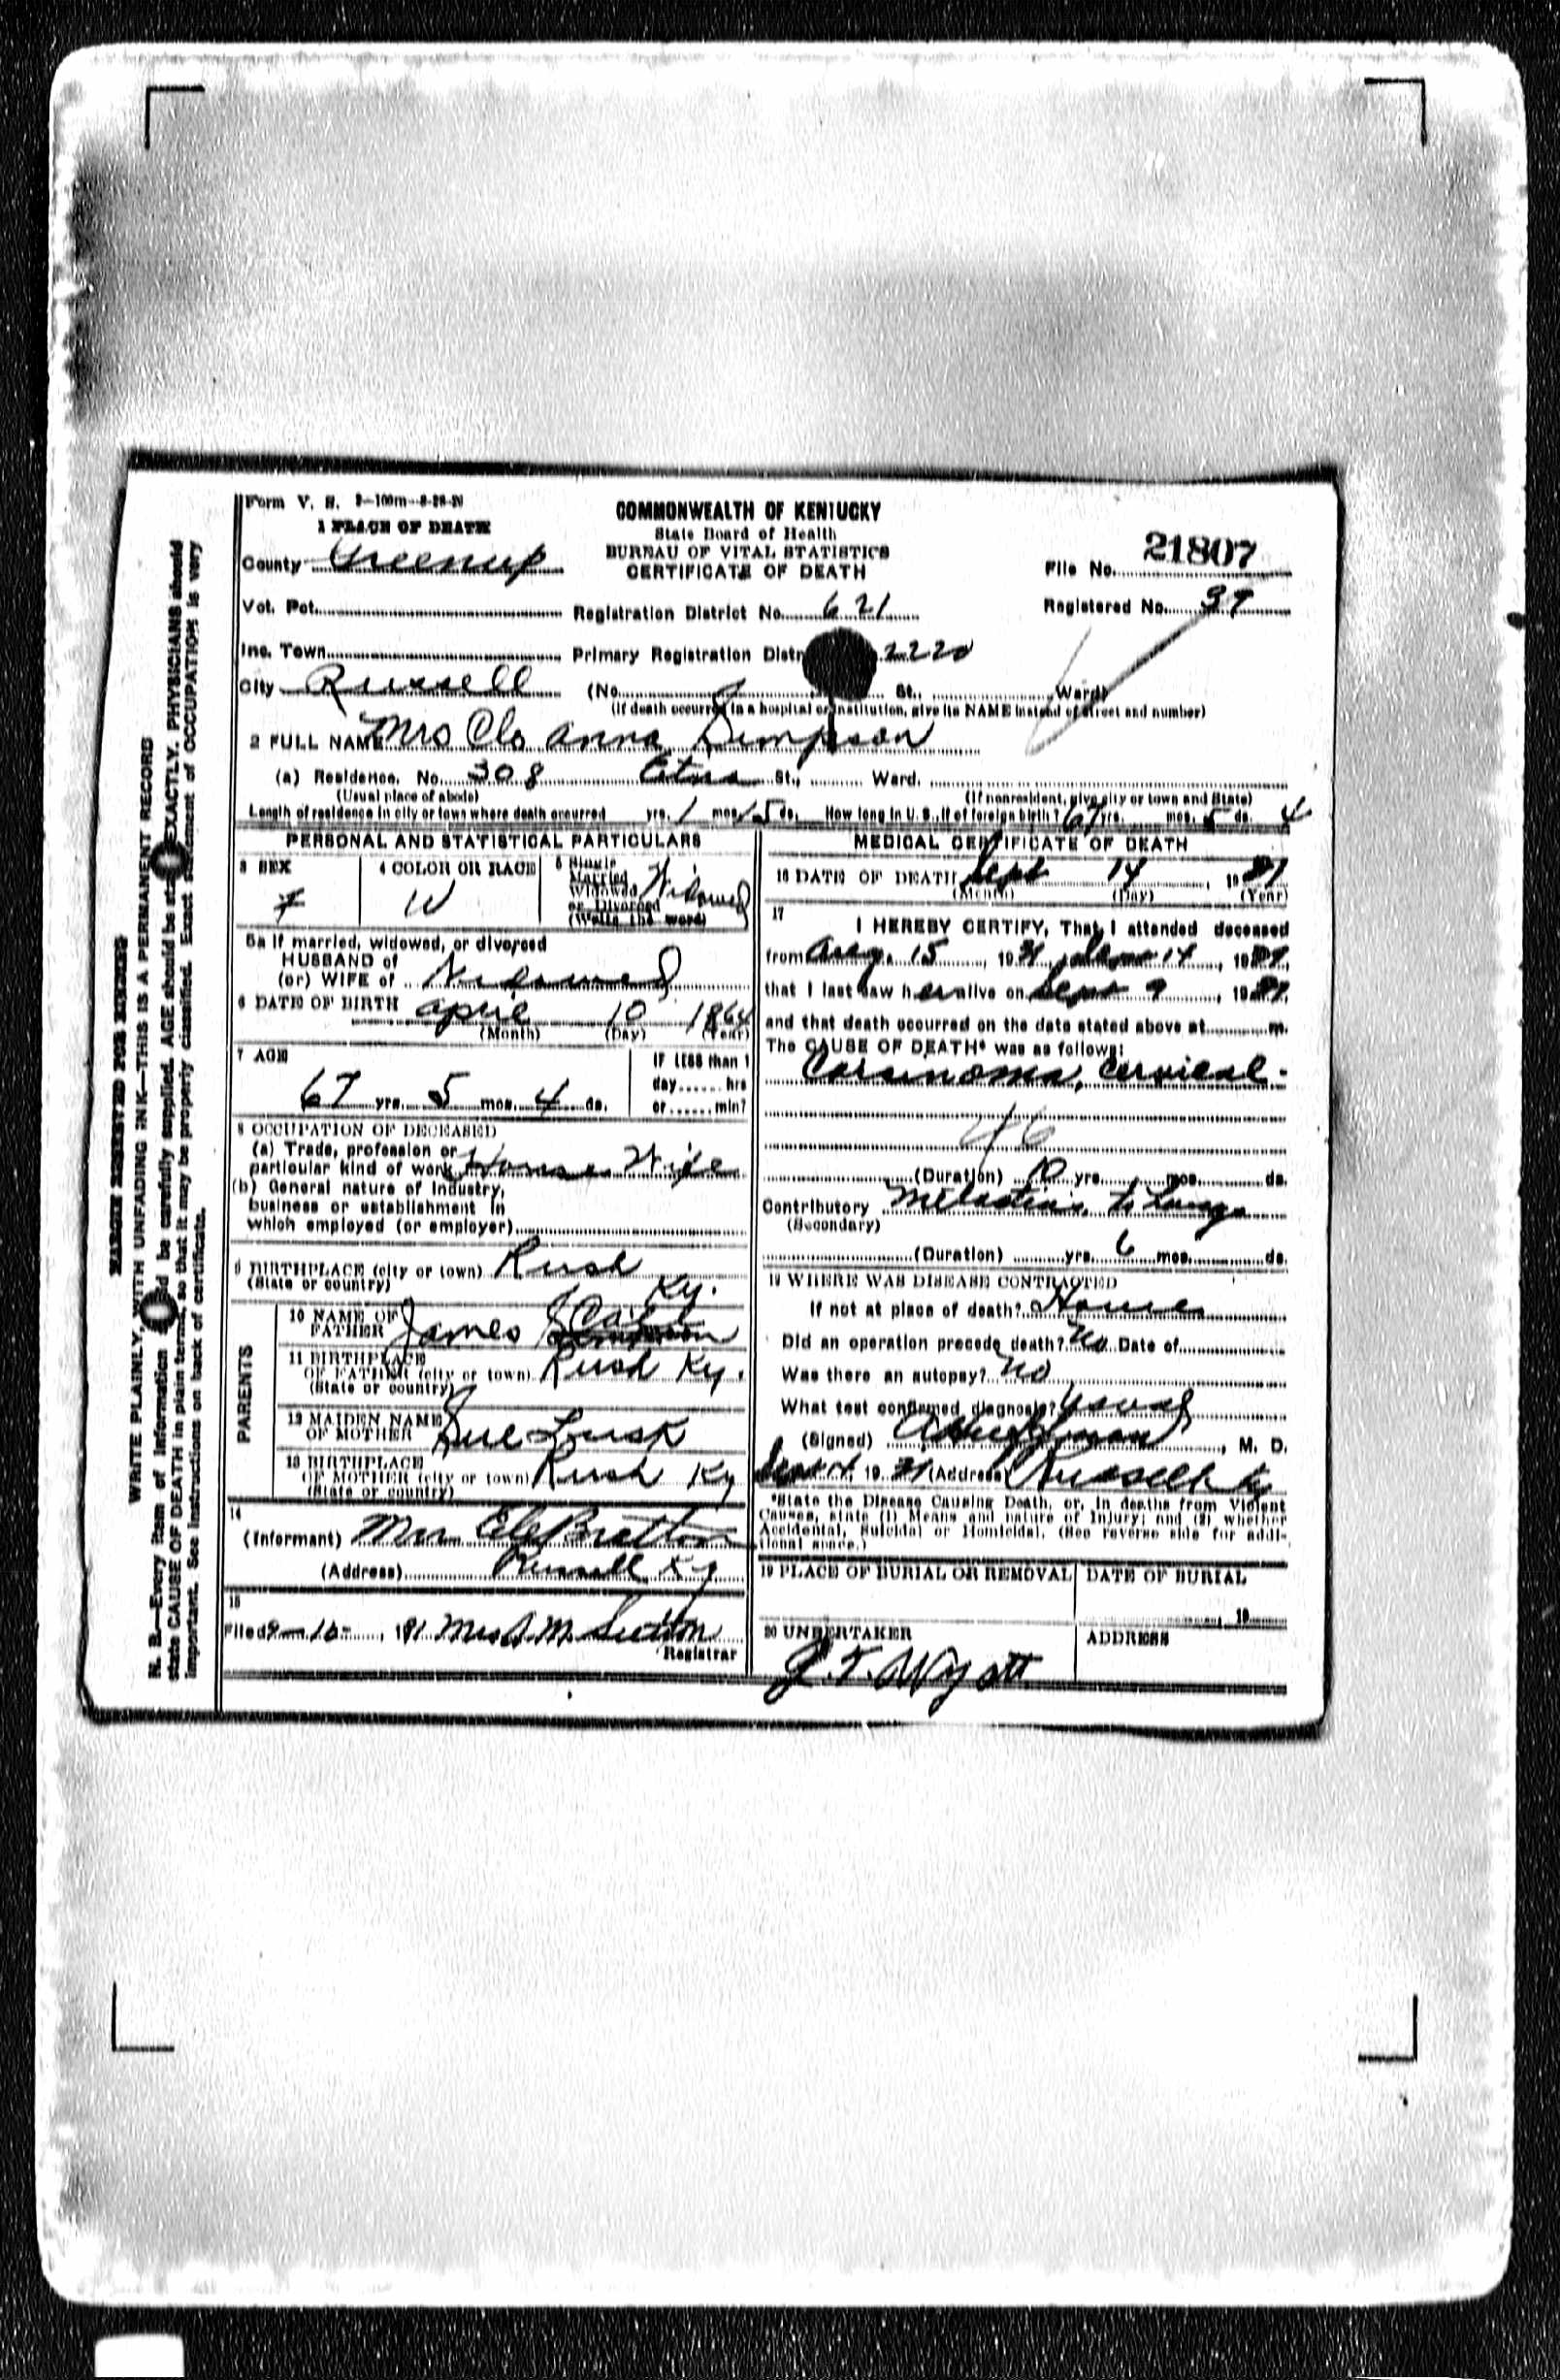 Form V. S. 2-100m-8-28-20
1 PLACE OF DEATH
COMMONWEALTH OF KENTUCKY
State Board of Health
BUREAU OF VITAL STATISTICS
CERTIFICATE OF DEATH
File No. 21807
County Greenup
Vot. Pct. Registration District No. 621 Registered No. 37
Inc. Town Primary Registration Distr 2220
City Russell (No. St., Ward)
(If death occurred in a hospital or institution, give its NAME instead of street and number)
2 FULL NAME Mrs Clo Anna Simpson
(a) Residence. No. 308 Etna St., Ward.
(Usual place of abode) (If nonresident, give city or town and State)
Length of residence in city or town where death occurred yrs. 1 mos. 15 ds. How long in U. S., if of foreign birth? 67 yrs. mos. 5 ds. 4
PERSONAL AND STATISTICAL PARTICULARS
3 SEX
F
4 COLOR OR RACE
W
5 Single
Married
Widowed
or Divorced
(Write the word)
Widowed
5a If married, widowed, or divorced
HUSBAND of
(or) WIFE of Widowed
6 DATE OF BIRTH April 10 1864
(Month) (Day) (Year)
7 AGE
67 yrs. 5 mos. 4 ds.
IF LESS than 1
day...... hrs
or...... min?
8 OCCUPATION OF DECEASED
(a) Trade, profession or
particular kind of work House Wife
(b) General nature of Industry,
business or establishment in
which employed (or employer)
9 BIRTHPLACE (city or town) Rush
(State or country) Ky.
PARENTS
10 NAME OF
FATHER James
11 BIRTHPLACE
OF FATHER (city or town) Rush Ky.
(State or country)
12 MAIDEN NAME
OF MOTHER Sue Lusk
13 BIRTHPLACE
OF MOTHER (city or town) Rush Ky
(State or country)
14
(Informant) Mrs Bratton
(Address) Russell Ky
15
Filed 9-16-, 1931 Mrs S. M. Sutton
Registrar
MEDICAL CERTIFICATE OF DEATH
16 DATE OF DEATH Sept 14, 1931
(Month) (Day) (Year)
17
I HEREBY CERTIFY, That I attended deceased
from Aug. 15, 1931, to Sept 14, 1931,
that I last saw her alive on Sept 9, 1931,
and that death occurred on the date stated above at m.
The CAUSE OF DEATH* was as follows:
Carsinoma, cervical-
46
(Duration) 10 yrs. mos. ds.
Contributory to Lungs
(Secondary)
(Duration) yrs. 6 mos. ds.
18 WHERE WAS DISEASE CONTRACTED
If not at place of death? Home
Did an operation precede death? No Date of
Was there an autopsy? No
What test confirmed diagnosis? Usual
(Signed) , M. D.
Sept 14, 1931 (Address) Russell Ky
*State the Disease Causing Death, or, in deaths from Violent
Causes, state (1) Means and nature of Injury; and (2) whether
Accidental, Suicidal or Homicidal. (See reverse side for addi-
tional space.)
19 PLACE OF BURIAL OR REMOVAL
DATE OF BURIAL
, 19
20 UNDERTAKER
J. T. Wyatt
ADDRESS
MARGIN RESERVED FOR BINDING
WRITE PLAINLY, WITH UNFADING INK—THIS IS A PERMANENT RECORD
N. B.—Every item of information should be carefully supplied. AGE should be stated EXACTLY. PHYSICIANS should
state CAUSE OF DEATH in plain terms, so that it may be properly classified. Exact statement of OCCUPATION is very
important. See instructions on back of certificate.